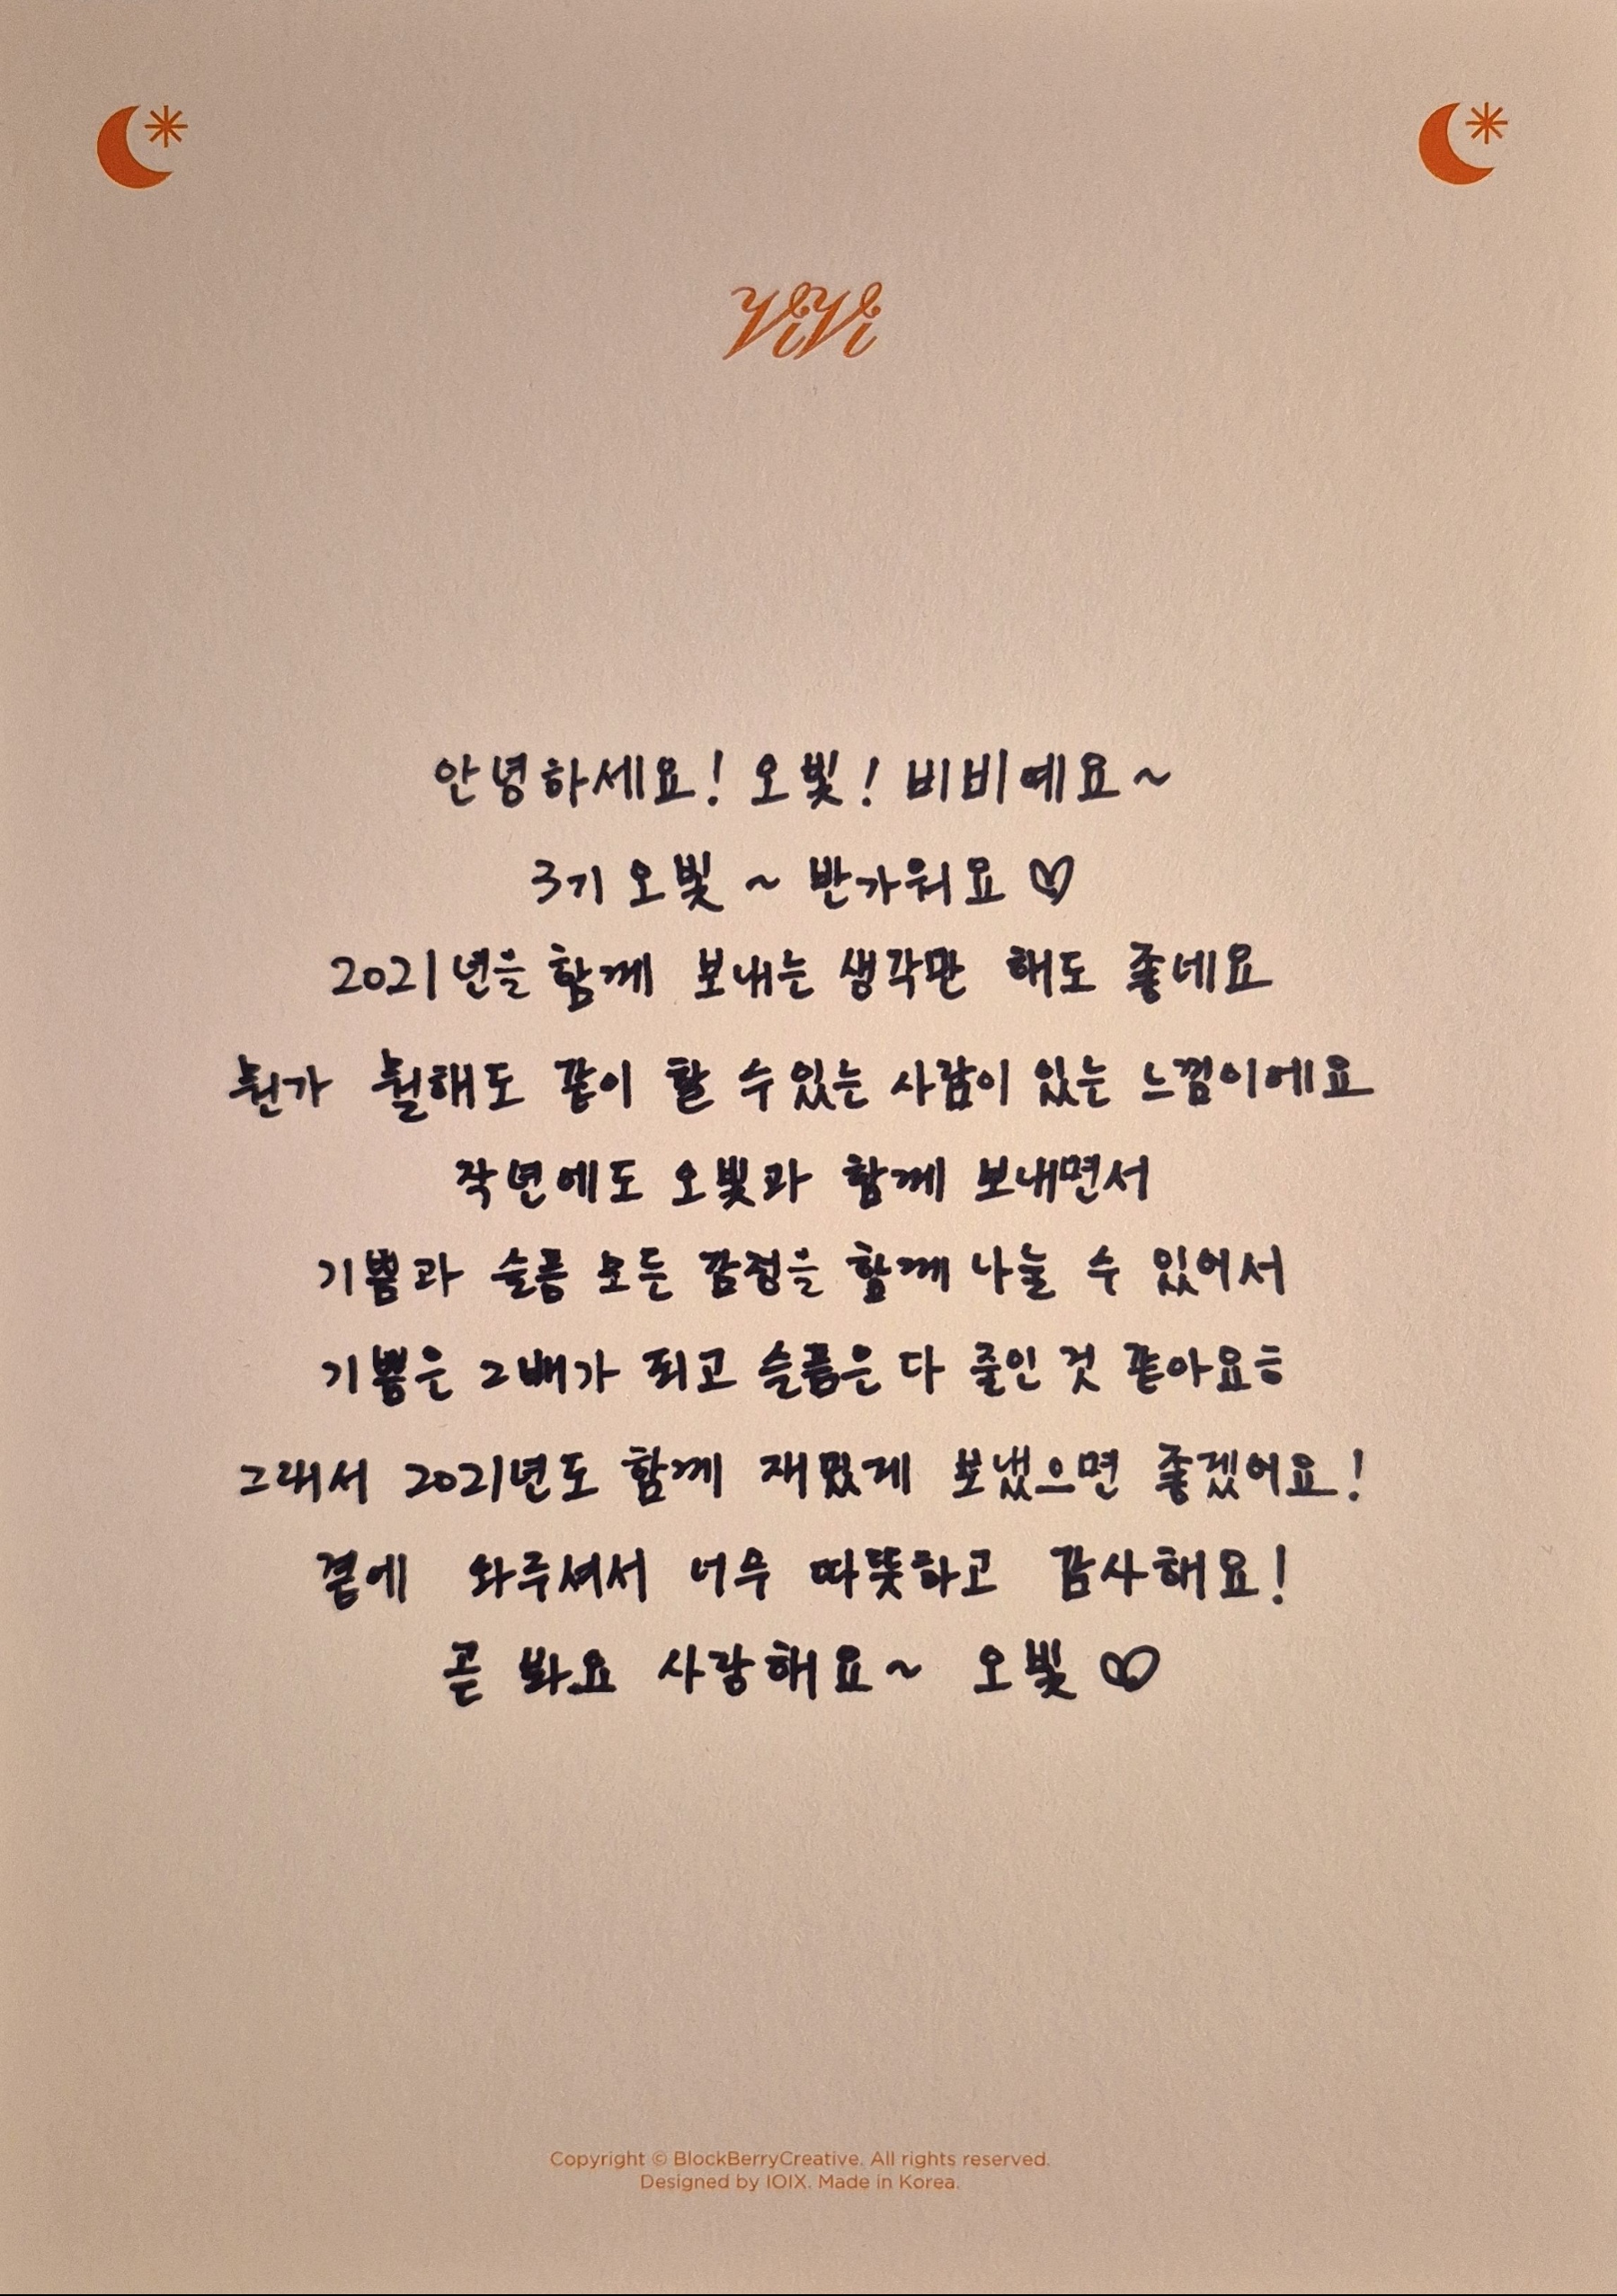 ViVi
안녕하세요! 오빛! 비비예요~
3기 오빛 ~ 반가워요 ♡
2021년을 함께 보내는 생각만 해도 좋네요
뭔가 뭘해도 같이 할 수 있는 사람이 있는 느낌이에요
작년에도 오빛과 함께 보내면서
기쁨과 슬픔 모든 감정을 함께 나눌 수 있어서
기쁨은 2배가 되고 슬픔은 다 줄인 것 같아요ㅎ
그래서 2021년도 함께 재밌게 보냈으면 좋겠어요!
곁에 와주셔서 너무 따뜻하고 감사해요!
곧 봐요 사랑해요~ 오빛 ♡
Copyright © BlockBerryCreative. All rights reserved.
Designed by IOIX. Made in Korea.